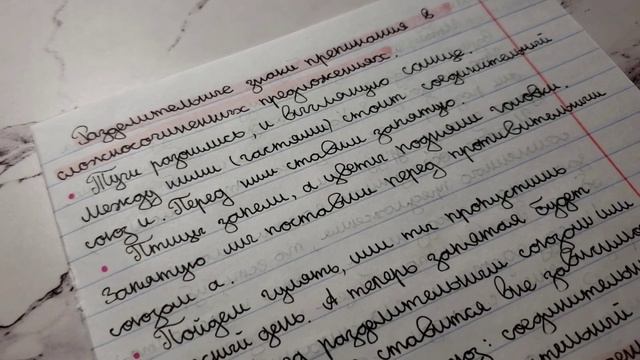 Разделительные знаки препинания в
сложносочиненных предложениях.
Тучи разошлись, и выглянуло солнце.
между ними (частями) стоит соединительный
союз и. Перед ним ставим запятую.
Птицы запели, а цветы подняли головки.
Запятую мы поставили перед противительным
союзом а.
Пойдем гулять, или ты пропустишь
день. А теперь запятая будет
разделительным союзом или
ставится вне
соединительный